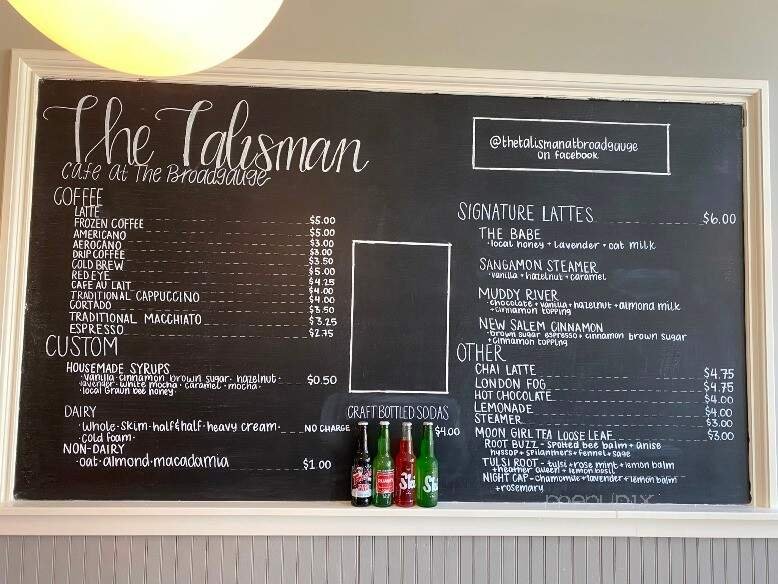 The Talisman
Cafe at The Broadgauge
COFFEE
LATTE $5.00
FROZEN COFFEE $5.00
AMERICANO $3.00
AEROCANO $3.00
DRIP COFFEE $3.50
COLD BREW $5.00
REDEYE $4.25
CAFE AU LAIT $4.00
TRADITIONAL CAPPUCCINO $4.00
CORTADO $3.50
TRADITIONAL MACCHIATO $3.25
ESPRESSO $2.75
CUSTOM
HOUSEMADE SYRUPS $0.50
·vanilla·cinnamon brown sugar·hazelnut·
lavender·white mocha·caramel·mocha·
·local Graun bee honey·
DAIRY
·whole·skim·half&half·heavy cream· NO CHARGE
·cold foam·
NON-DAIRY
·oat·almond·macadamia $1.00
CRAFT BOTTLED SODAS
$4.00
@thetalismanatbroadgauge
on facebook
SIGNATURE LATTES $6.00
THE BABE
·local honey + lavender + oat milk
SANGAMON STEAMER
·vanilla + hazelnut + caramel
MUDDY RIVER
·chocolate + vanilla + hazelnut + almond milk
+cinnamon topping
NEW SALEM CINNAMON
·brown sugar espresso + cinnamon brown sugar
+cinnamon topping
OTHER
CHAI LATTE $4.75
LONDON FOG $4.75
HOT CHOCOLATE $4.00
LEMONADE $4.00
STEAMER $3.00
MOON GIRL TEA LOOSE LEAF $3.00
ROOT BUZZ - spotted bee balm + anise
hyssop + spilanthes + fennel + sage
TULSI ROOT - tulsi + rose mint + lemon balm
+ heather queen + lemon basil
NIGHT CAP - chamomile + lavender + lemon balm
+rosemary
menupix